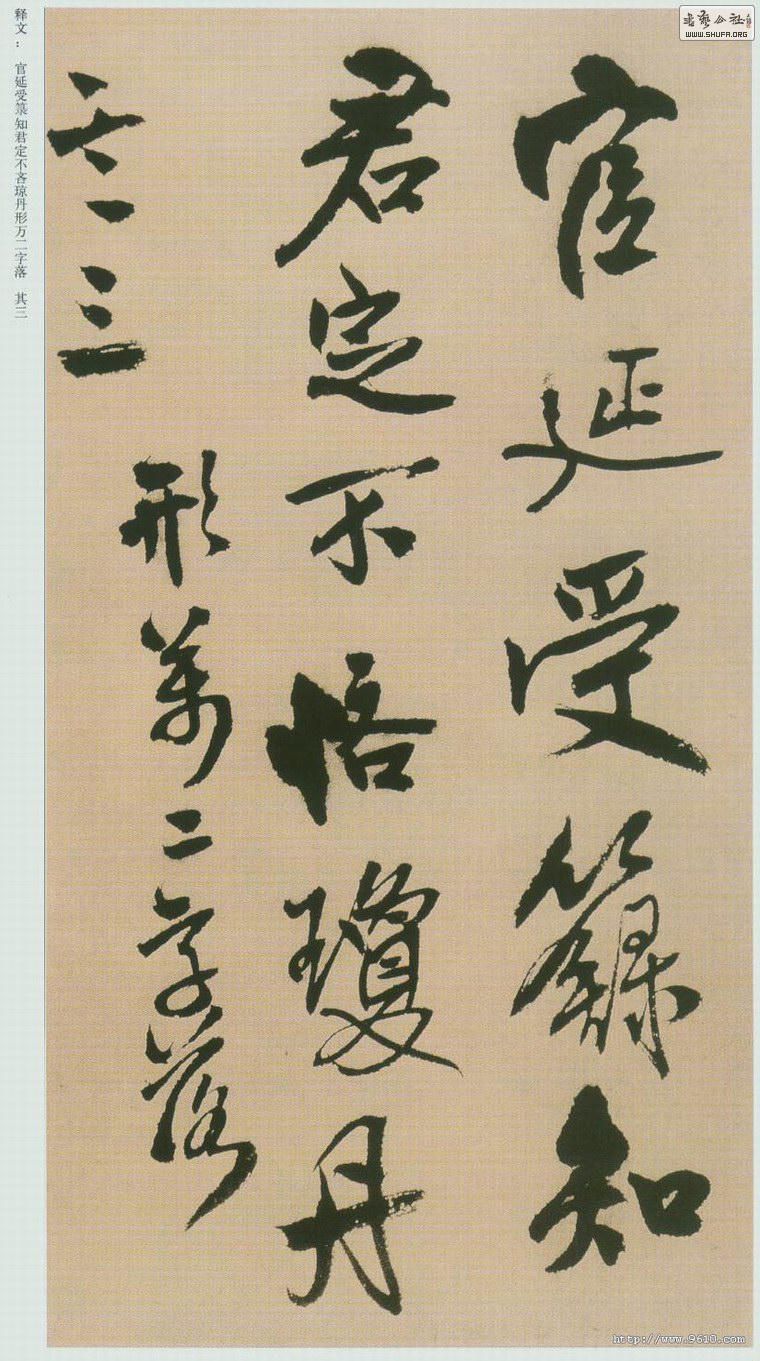 官延受籙知
君定不悋瓊丹
形萬二字落
其三
释文： 官延受箓知君定不吝琼丹形万二字落 其三
書藝公社
WWW.SHUFA.ORG
http://www.9610.com